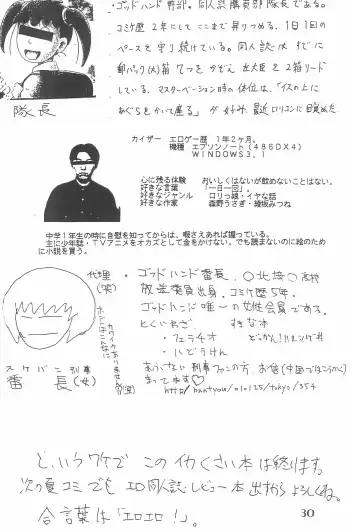 ・ゴッドハンド幹部。同人誌購買部隊長である。
コミケ歴2年にしてここまで昇りつめる。1日1回の
ペースを守り続けている。同人誌はすでに
郵パック(大)箱7つをかぞえ
している。マスターベーション時の体位は、「イスの上に
あぐらをかいて座る」が好み。最近ロリコンに目覚めた
隊長
カイザー エロゲー歴 1年2ヶ月。
機種 エプソンノート(486DX4)
WINDOWS3.1
心に残る体験 おいしくはないが飲めないことはない。
好きな言葉 「一日一回」。
好きなジャンル ロリっ娘・イヤな話
好きな作家 森野うさぎ・綾坂みつね
中学1年生の時に自慰を知ってからは、暇さえあれば握っている。
主に少年誌・TVアニメをオカズとして金をかけない。でも読まないのに絵のため
に小説を買う。
代理
(笑)
・ゴッドハンド番長。○北培○高校
放送委員出身。コミケ歴5年。
ゴッドハンド唯一の女性会員である。
とくいわざ すきな本
・フェラチオ
・はどうけん
スケバン刑事
番長(女)
あぶない刑事ファンの方、お信
まってます♡
というワケで このイカくさい本は終ります。
次の夏コミでも エロ同人誌レビュー本 出すからよろしくね。
合言葉は「エロエロ!」。
30